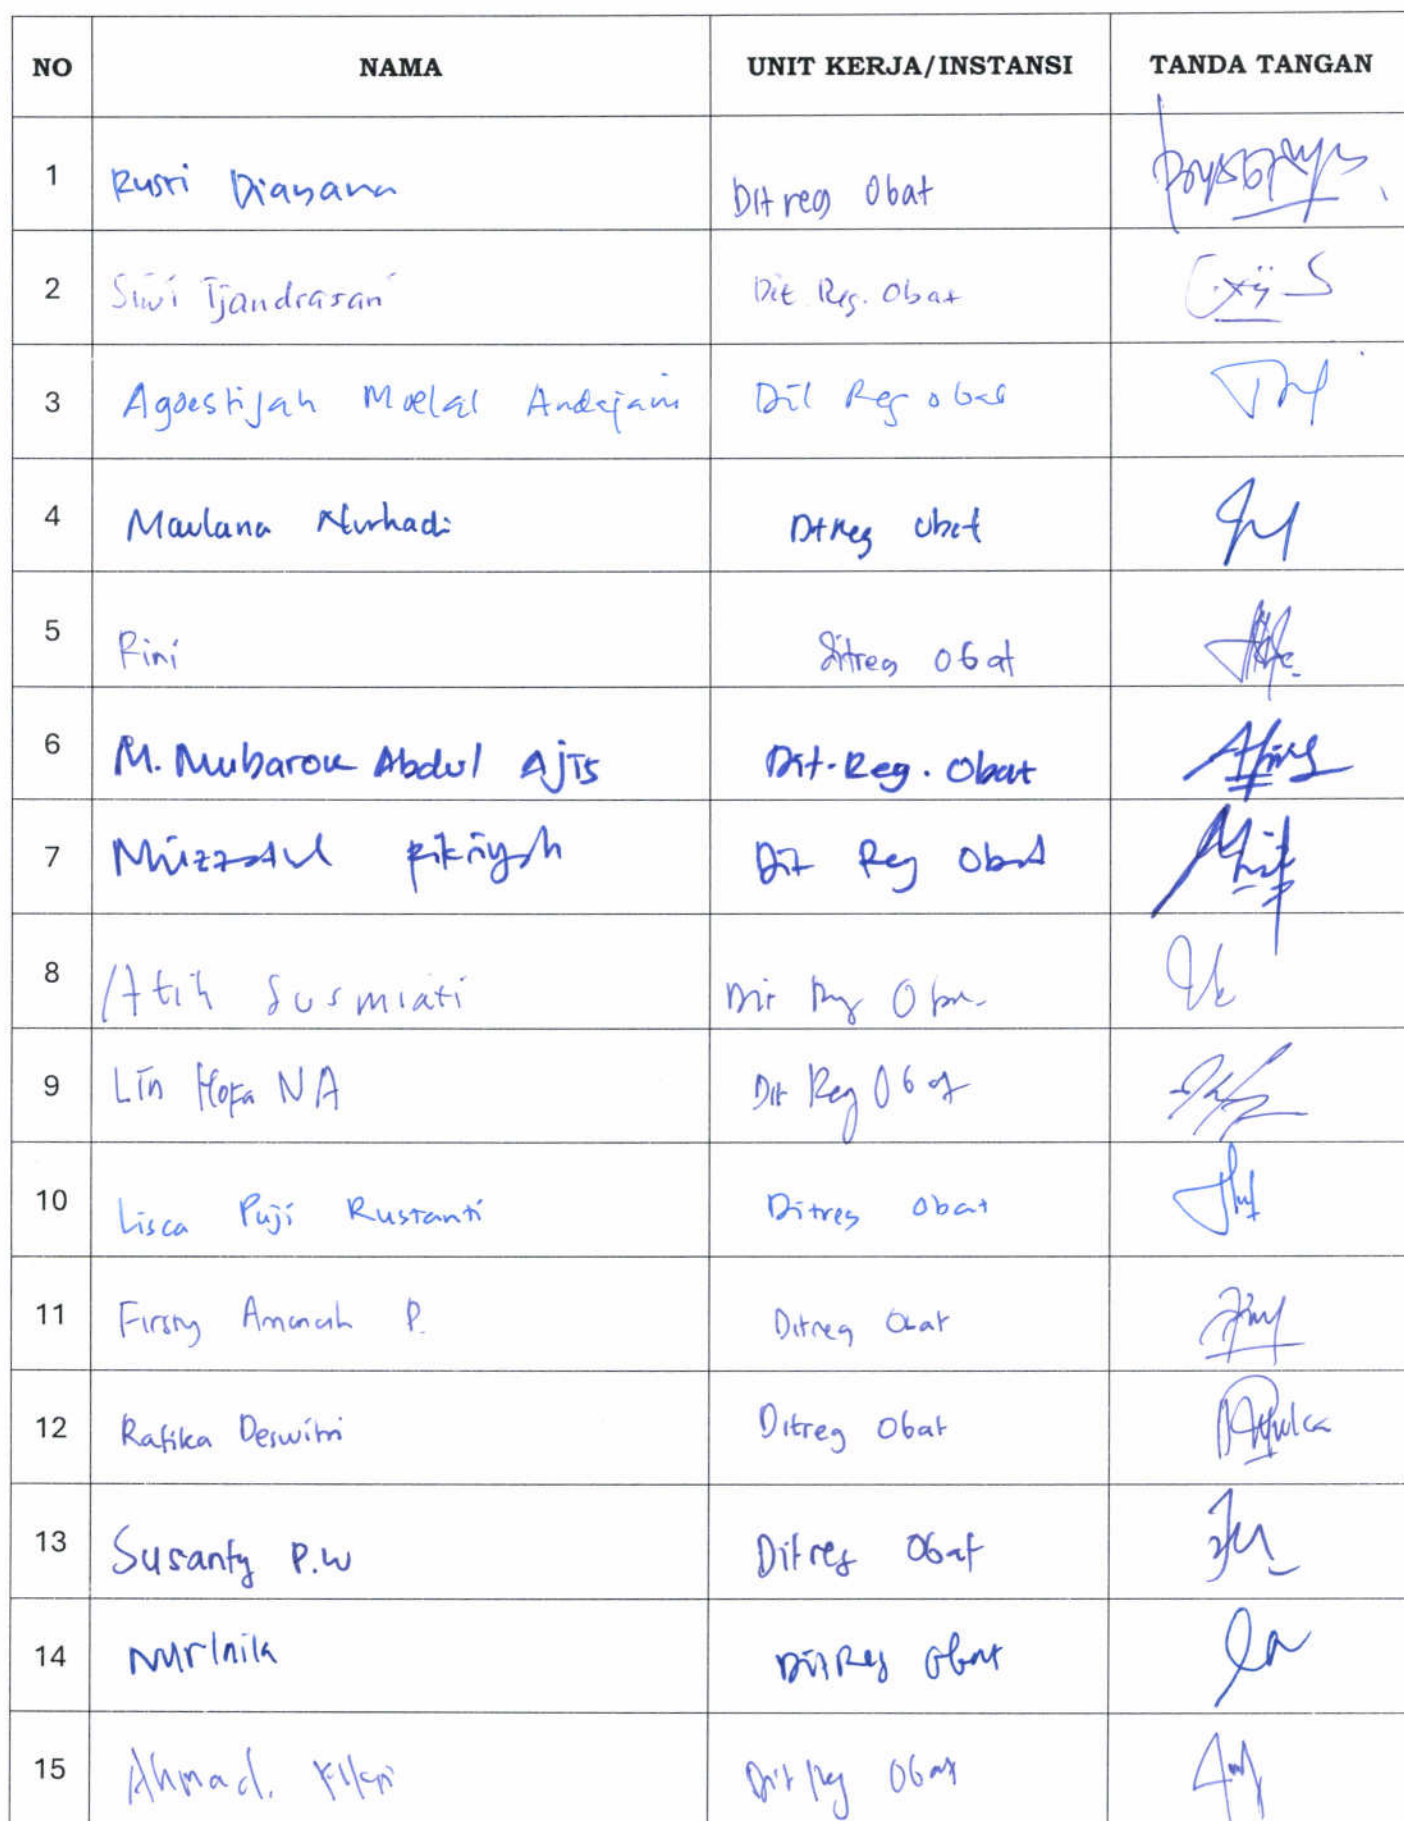 NO NAMA UNIT KERJA/INSTANSI TANDA TANGAN
1 Rusri Diayana Ditreg Obat
2 Siwi Tjandrasari Dit Reg. Obat
3 Agoestijah Moelal Andajani Dit Reg obat
4 Maulana Nurhadi Ditreg Obat
5 Rini Ditreg Obat
6 M. Mubarok Abdul Ajis Dit. Reg. Obat
7 Muzzatul Fikriyah Dit Reg Obat
8 Atih Susmiati Dit Reg
9 Lin NA Dit Reg Obat
10 Lisca Puji Rustanti Ditreg Obat
11 Amanah P. Ditreg Obat
12 Rafika Deswitri Ditreg Obat
13 Susanty P.W Ditreg Obat
14 Nurlaila Dit Reg Obat
15 Ahmad. Dit Reg Obat